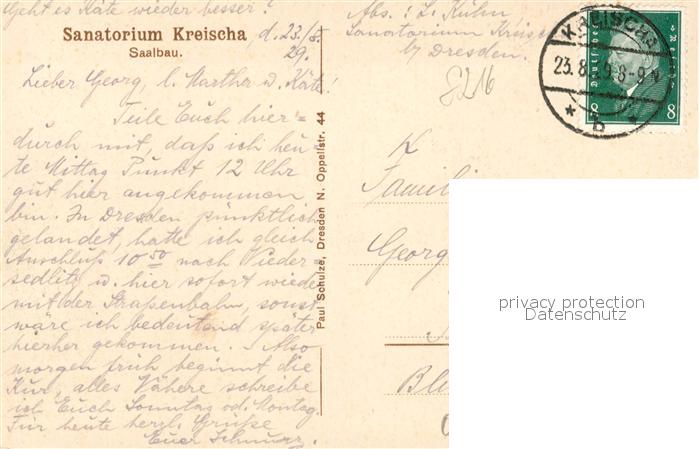 Geht es Käte wieder besser?
Sanatorium Kreischa
Saalbau.
d. 23./8.
29.
Lieber Georg, l. Martha u. Käte!
Teile Euch hier=
durch mit, daß ich heu
te Mittag Punkt 12 Uhr
gut hier angekommen
bin. In Dresden pünktlich
gelandet, hatte ich gleich
Anschluß 10 50 nach Nieder-
sedlitz u. hier sofort wieder
mit der Straßenbahn, sonst
wäre ich bedeutend später
hierher gekommen. Also
morgen früh beginnt die
Kur, alles Nähere schreibe
ich Euch Sonntag od. Montag.
Für heute herzl. Grüße
Euer
Paul Schulze, Dresden N. Oppellstr. 44
Abs.: L. Kühn
Sanatorium Kreisc
b/ Dresden.
8216
KREISCHA
23.8.29.8-9 N
* b *
Deutsches Reich
8 8
Famili
Georg
Bl
privacy protection
Datenschutz